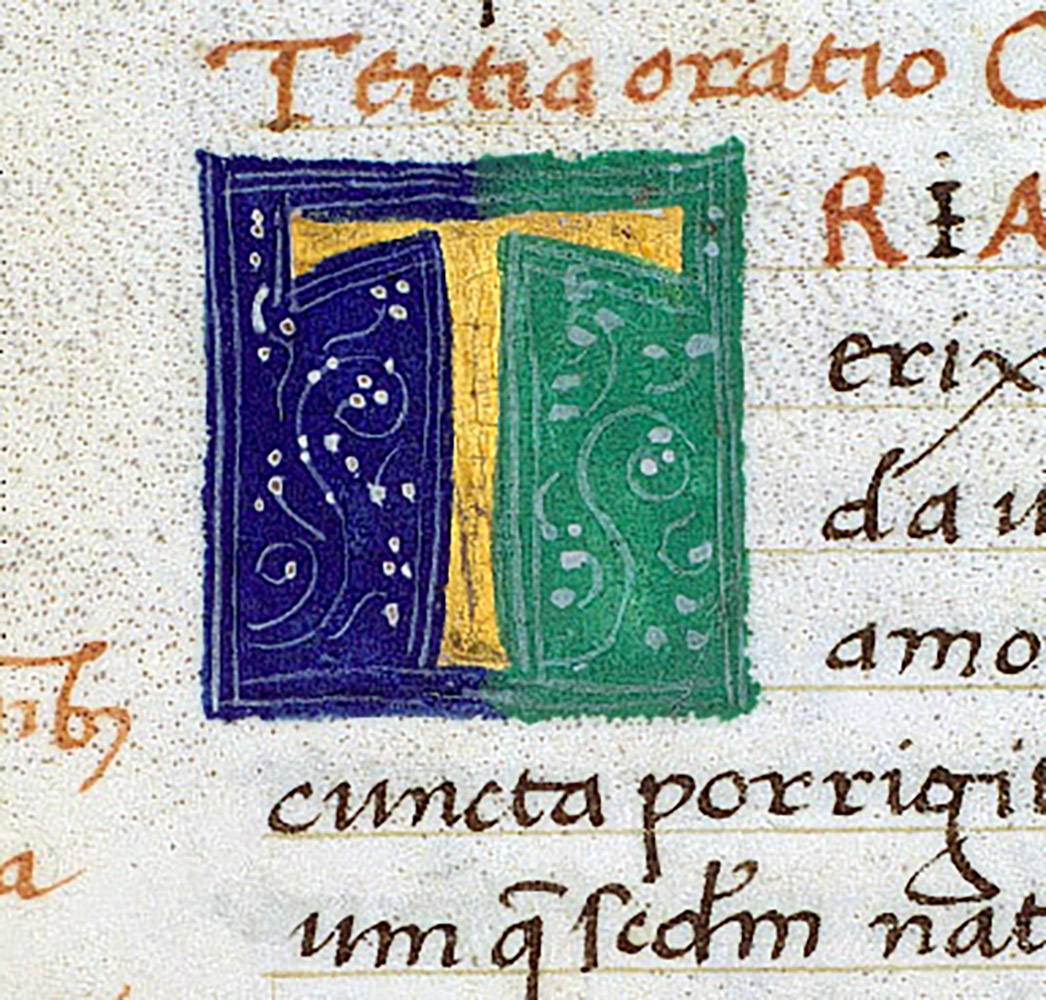 Tertia oratio
T RIA
erix
da
amo
cuncta porrigit
um q̄ scd̄m nat